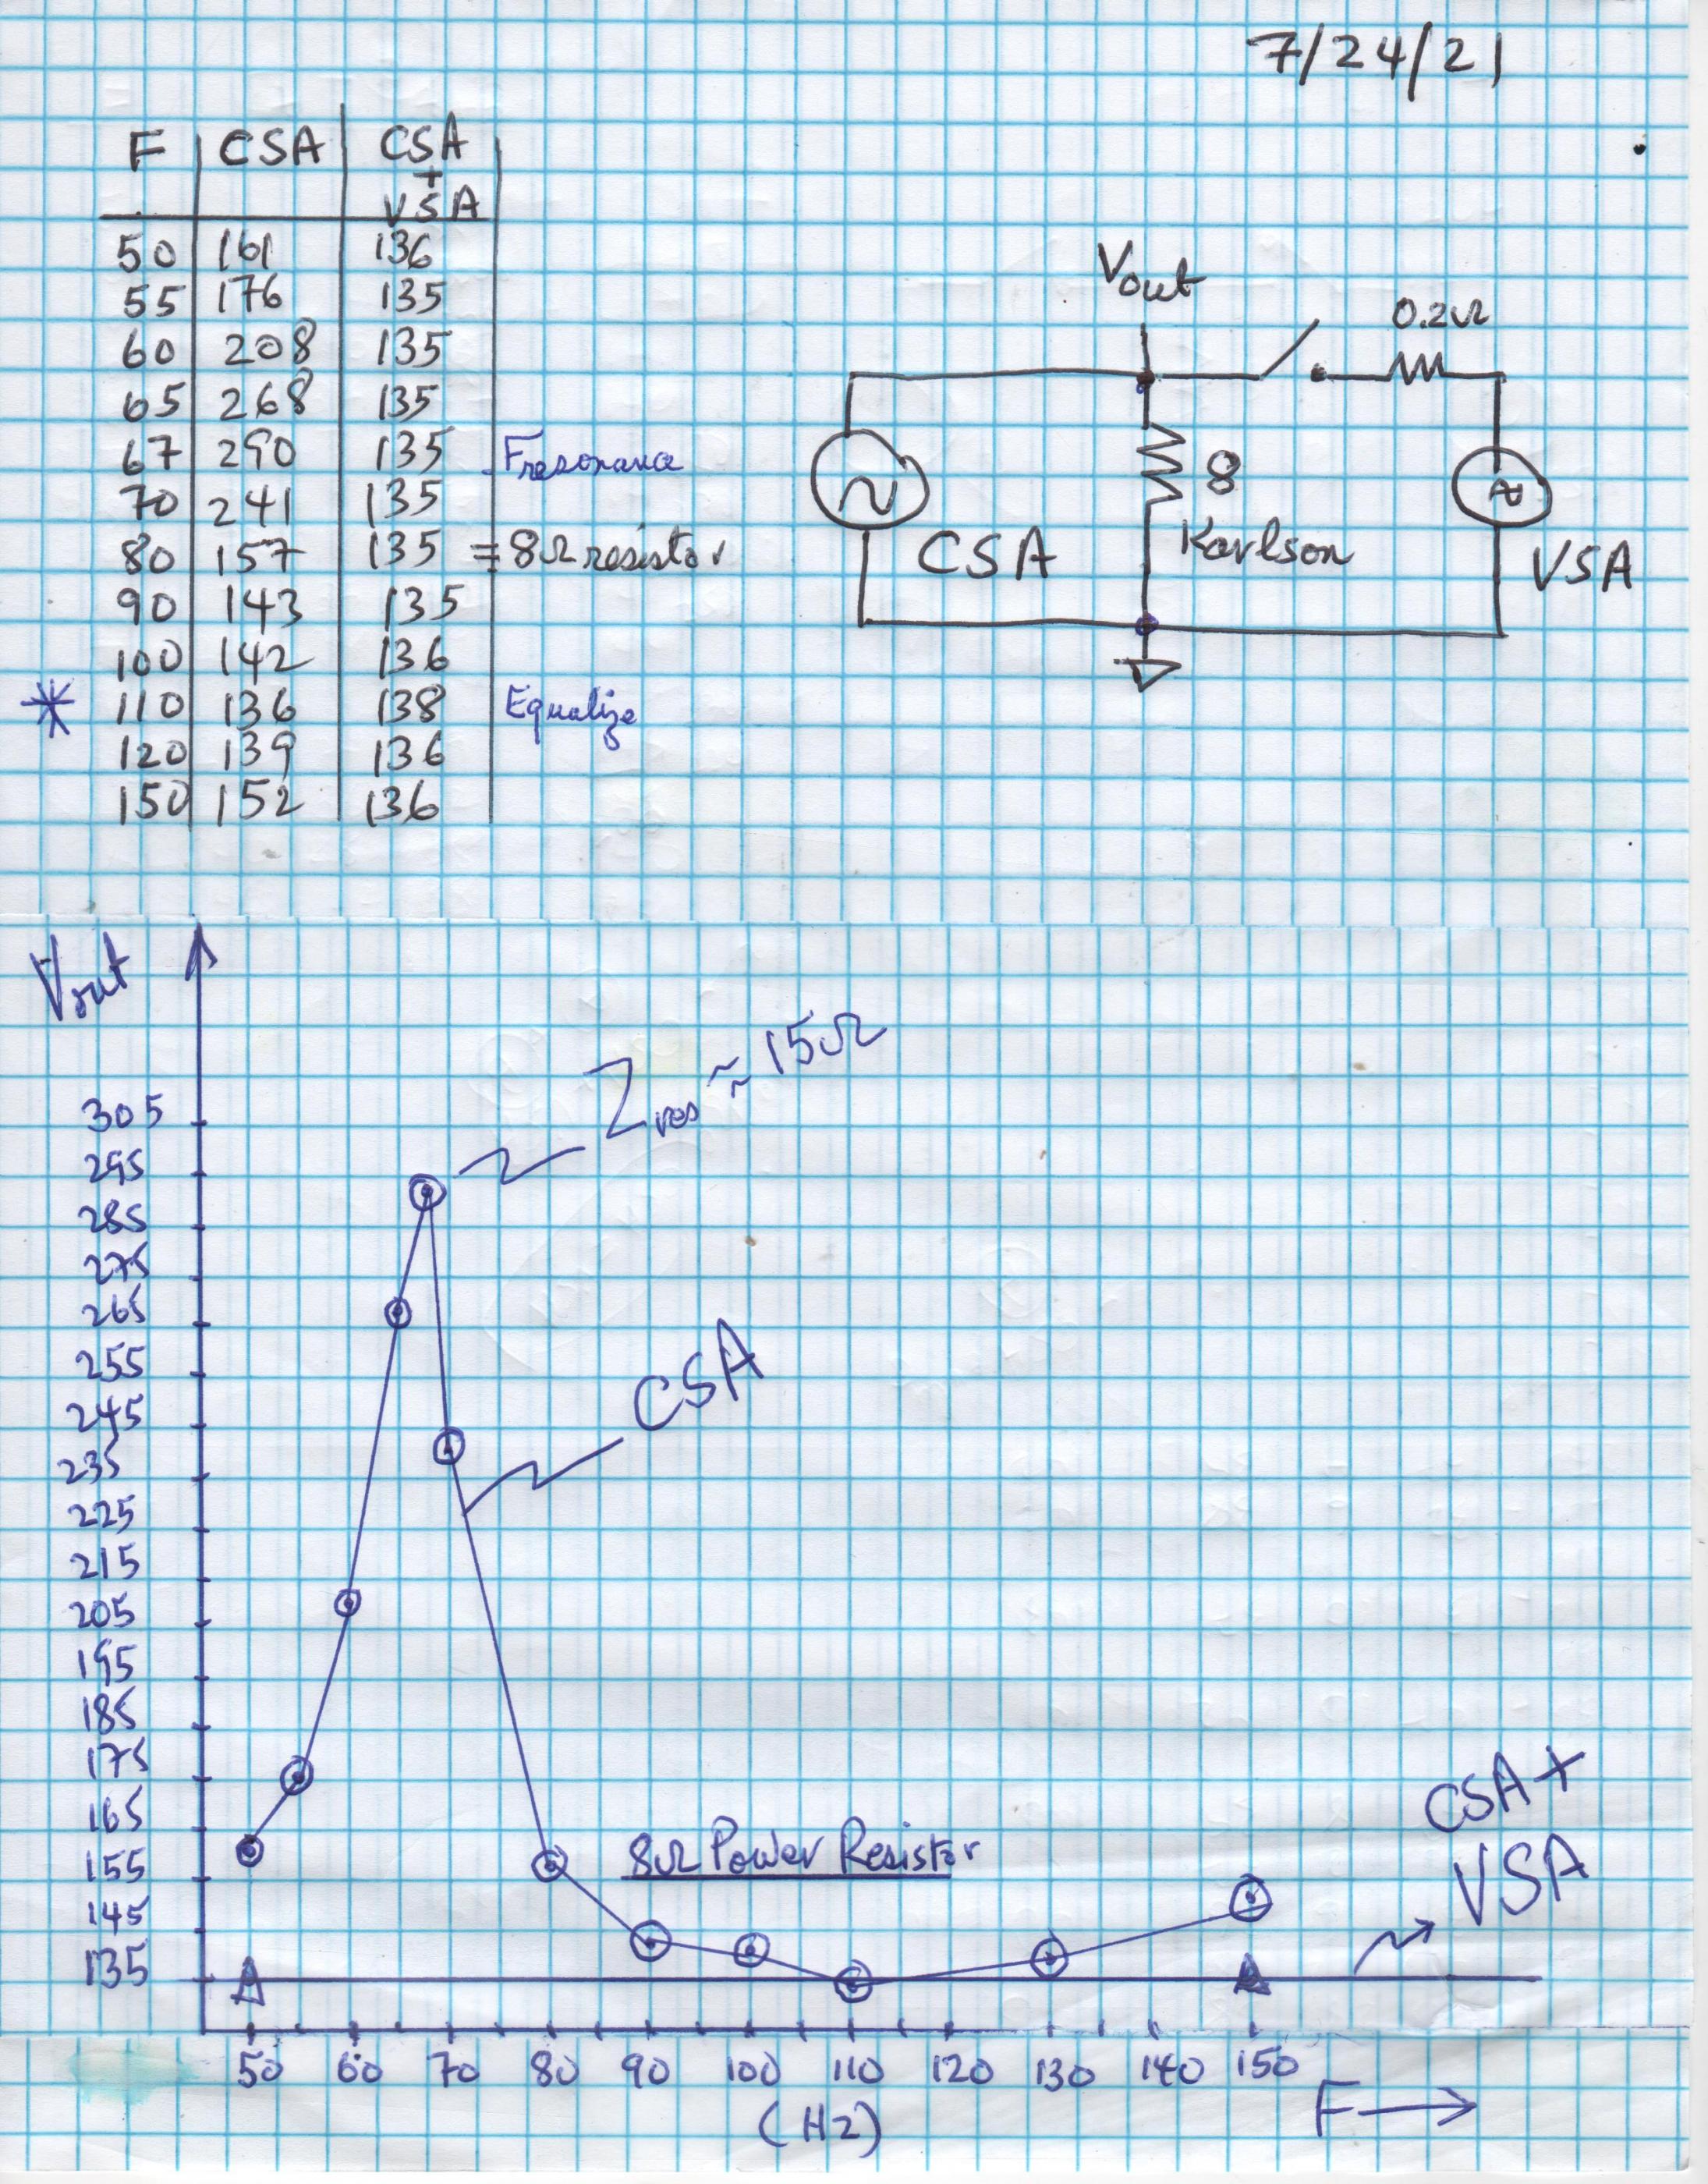 7/24/21
F CSA CSA
+
VSA
50 161 136
55 176 135
60 208 135
65 268 135
67 290 135 Fresonance
70 241 135
80 157 135 = 8Ω resistor
90 143 135
100 142 136
* 110 136 138 Equalize
120 139 136
150 152 136
Vout
0.2Ω
8
CSA Karlson VSA
Vout
Zres ≈ 15Ω
305
295
285
275
265
255
CSA
245
235
225
215
205
195
185
175
CSA +
165
VSA
155 8Ω Power Resistor
145
135
50 60 70 80 90 100 110 120 130 140 150
(Hz)
F